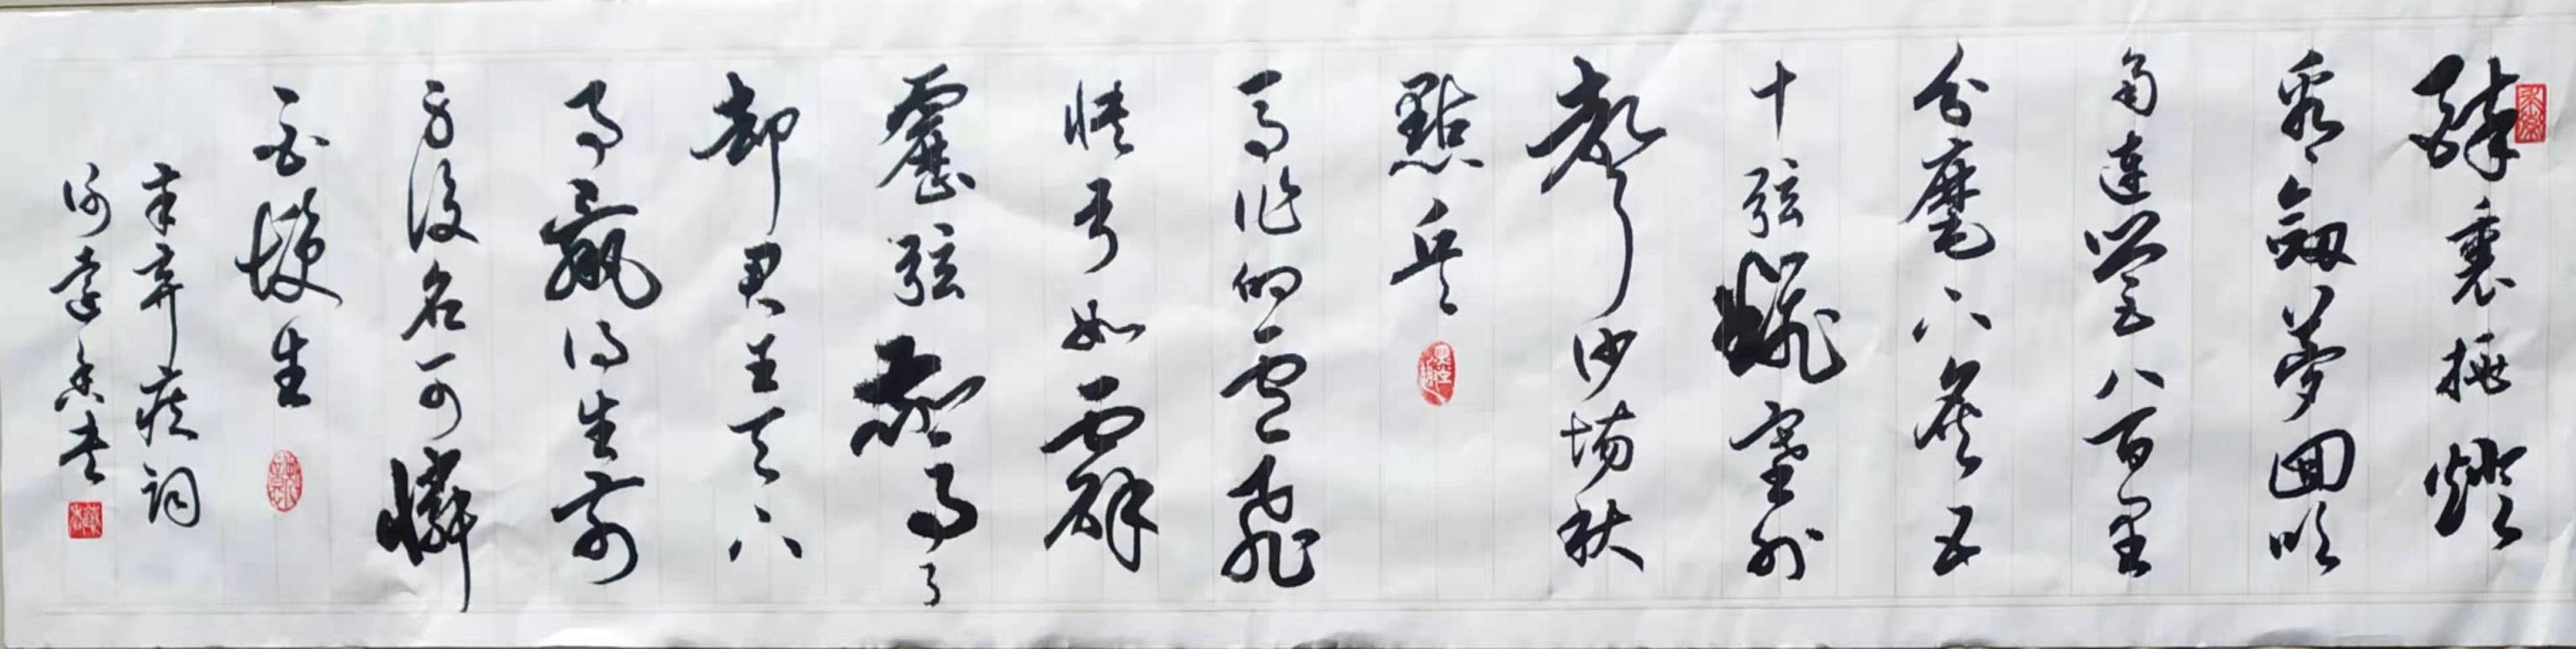 醉裏挑燈
看劍夢囬吹
角連營八百里
分麾下炙五
十弦翻塞外
聲沙場秋
點兵
馬作的盧飛
快弓如霹
靂弦驚了
却君王天下
事贏得生前
身後名可憐
白髮生
辛弃疾詞